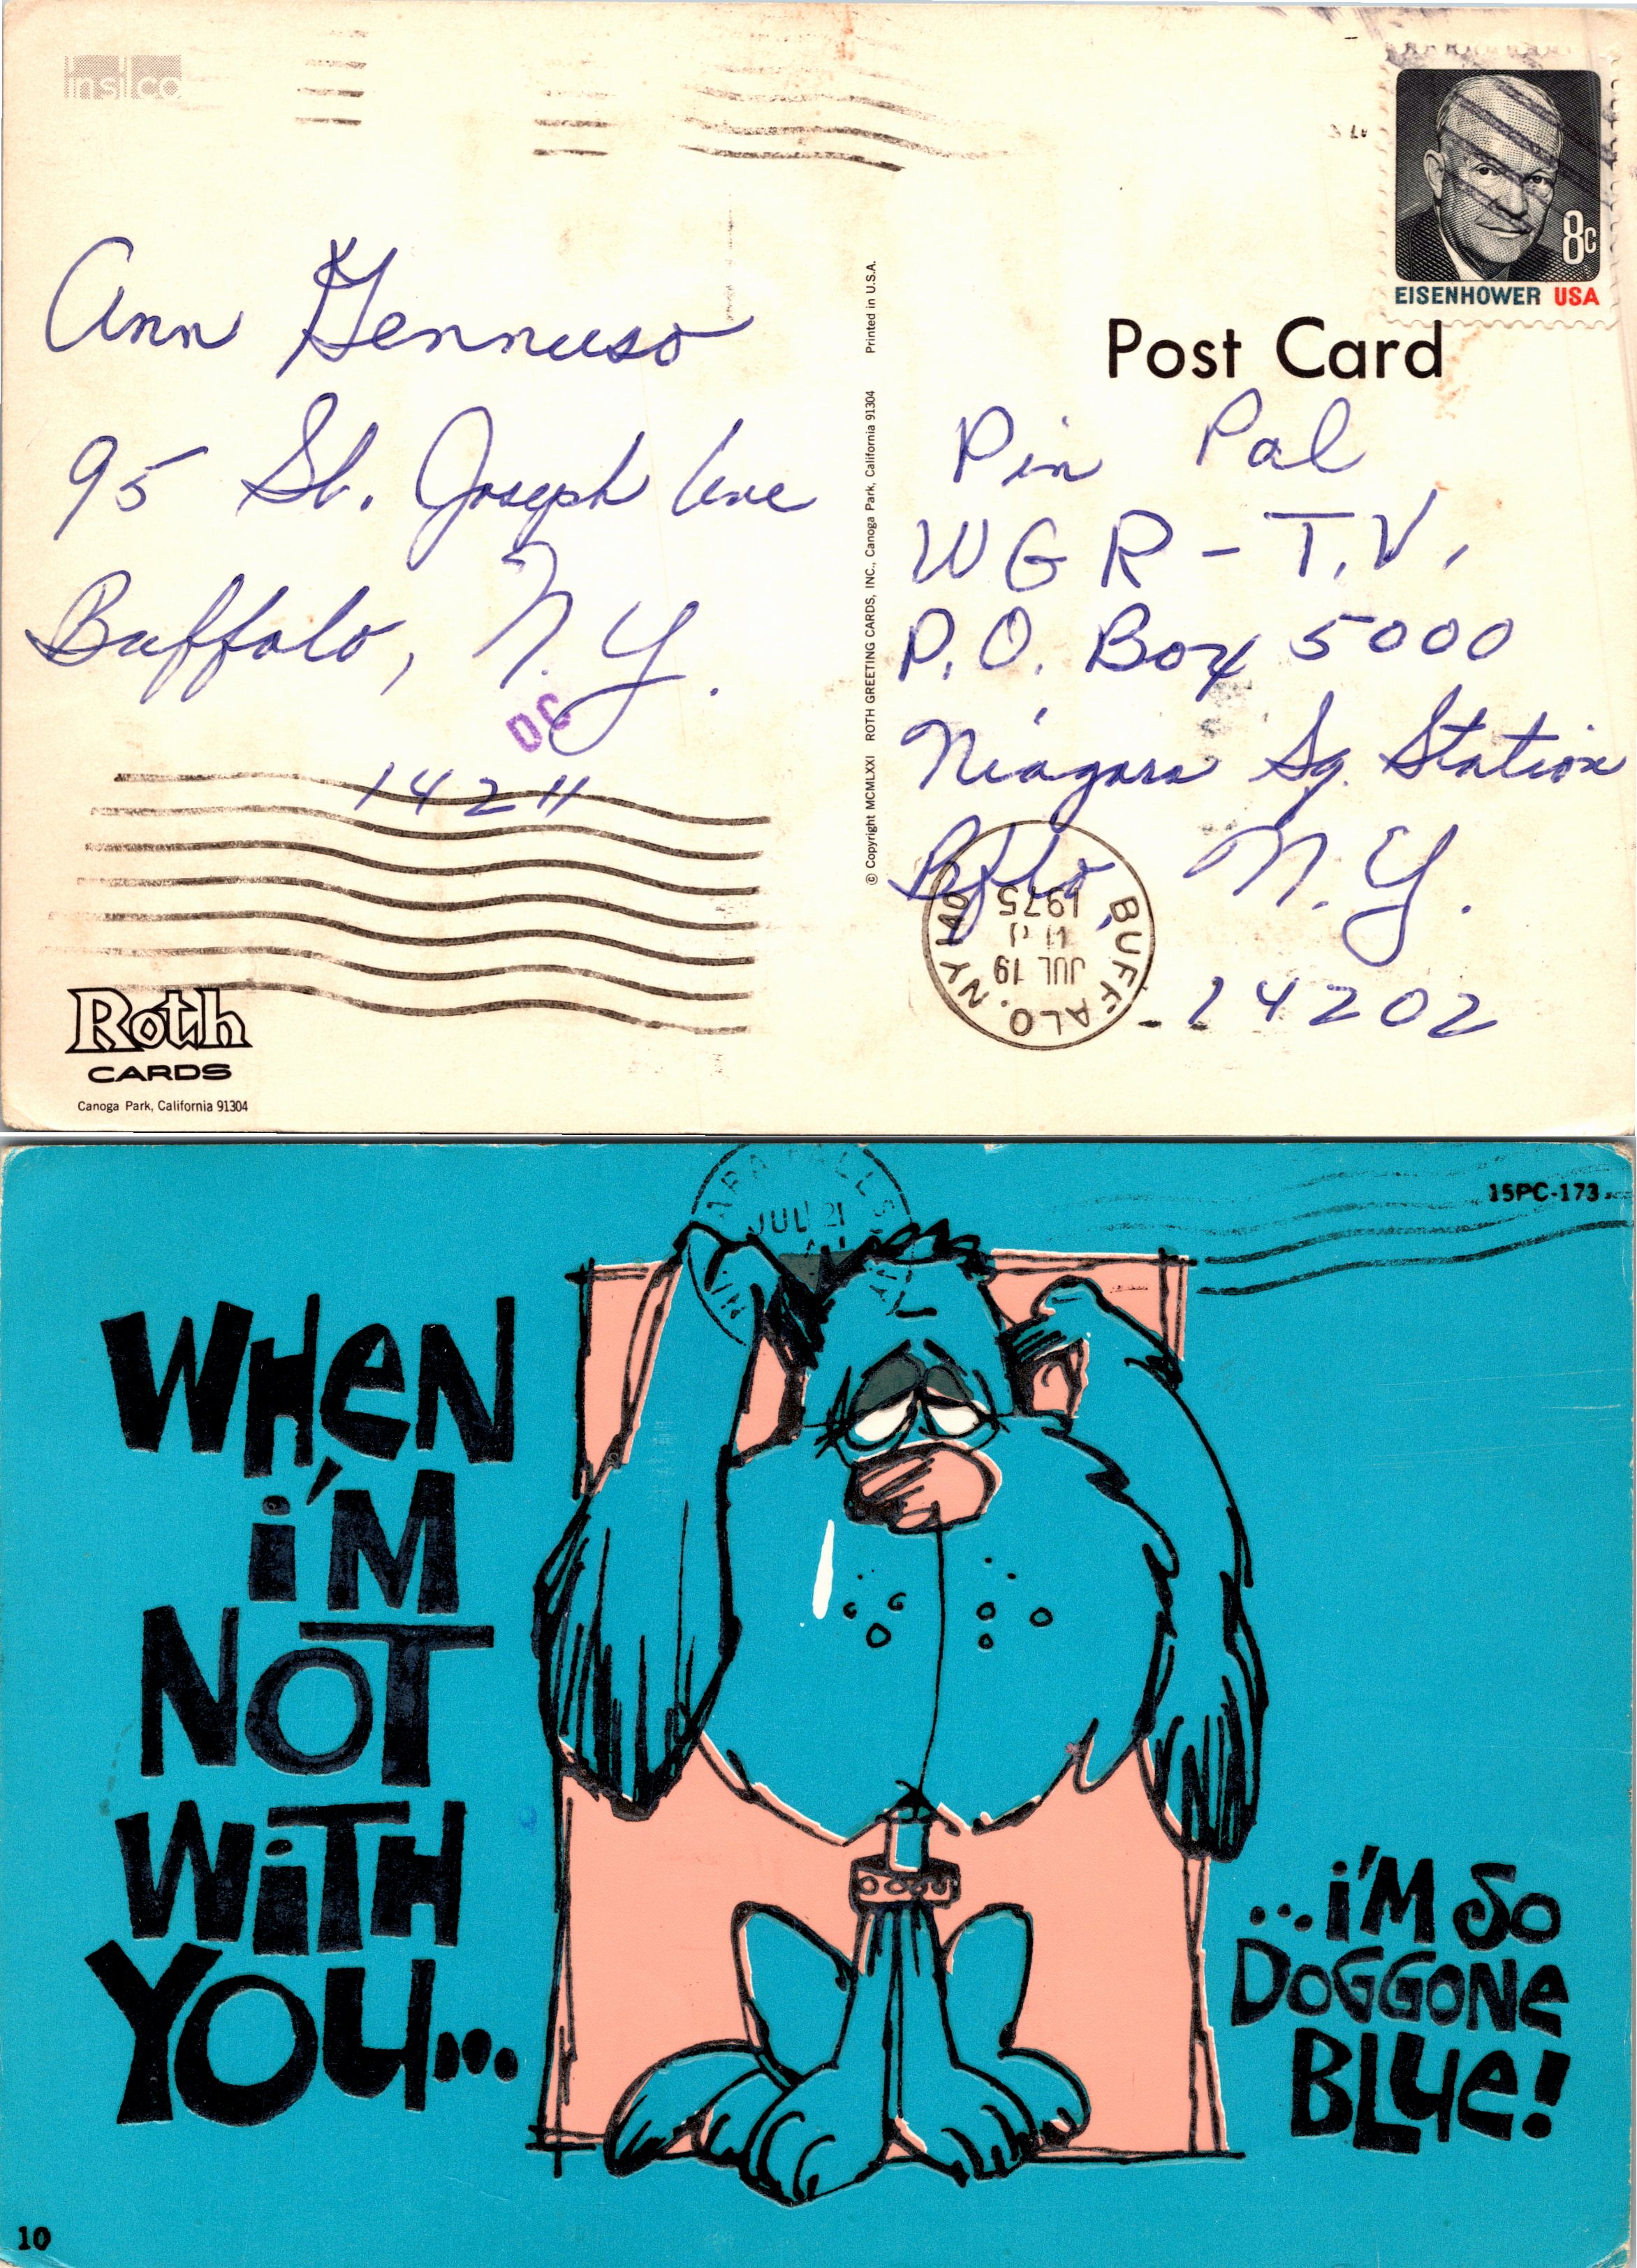 insilco
8c
EISENHOWER USA
Post Card
Ann Gennuso
95 St. Joseph Ave
Buffalo, N.Y.
14211
DC
Roth
CARDS
Canoga Park, California 91304
© Copyright MCMLXXI ROTH GREETING CARDS, INC., Canoga Park, California 91304 Printed in U.S.A.
Pin Pal
WGR-T.V.
P.O. Box 5000
Niagara Sq. Station
Bflo, N.Y.
14202
BUFFALO, NY
JUL 19
1975
JUL 21
15PC-173
WHeN
i'M
NOT
WiTH
YOU...
...i'M SO
DOGGONe
BLUe!
10